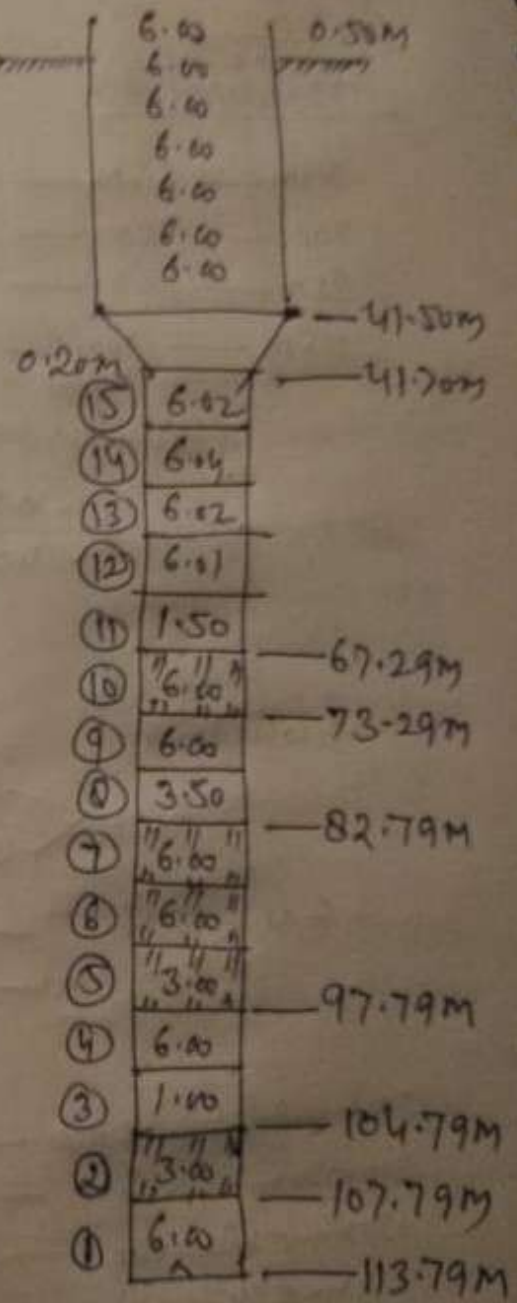 6.00 0.50m
6.00
6.00
6.00
6.00
6.00
6.00
41.50m
0.20m 41.70m
15 6.02
14 6.04
13 6.02
12 6.01
11 1.50
67.29m
10 6.00
73.29m
9 6.00
8 3.50
82.79m
7 6.00
6 6.00
5 3.00
97.79m
4 6.00
3 1.00
104.79m
2 3.00
107.79m
1 6.00
113.79m